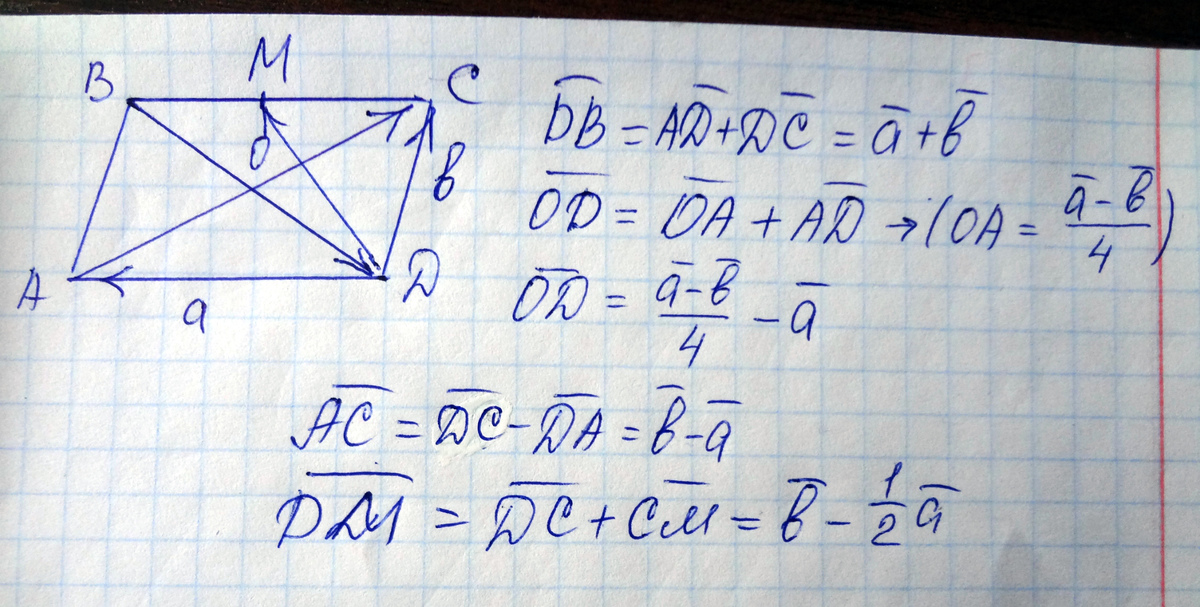 B M C
O
в
A a D
D̅B̅ = AD̅ + DC̅ = a̅ + в̅
O̅D̅ = O̅A̅ + AD̅ → (OA = (a̅ - в̅)/4)
O̅D̅ = (a̅ - в̅)/4 - a̅
A̅C̅ = D̅C̅ - D̅A̅ = в̅ - a̅
D̅M̅ = D̅C̅ + C̅M̅ = в̅ - 1/2 a̅